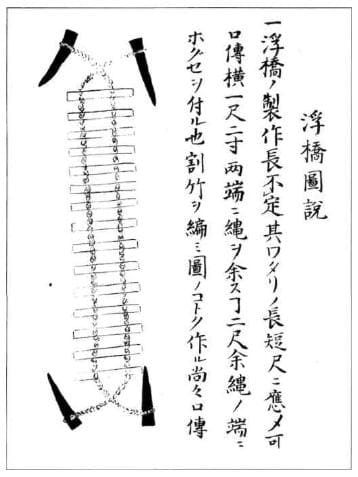 浮橋圖説
一浮橋ノ製作長不定其ワタリノ長短尺ニ應メ可
口傳横一尺二寸両端ニ縄ヲ余スヿ二尺余縄ノ端ニ
ホグセヲ付ル也割竹ヲ編ミ圖ノコトク作ル尚々口傳